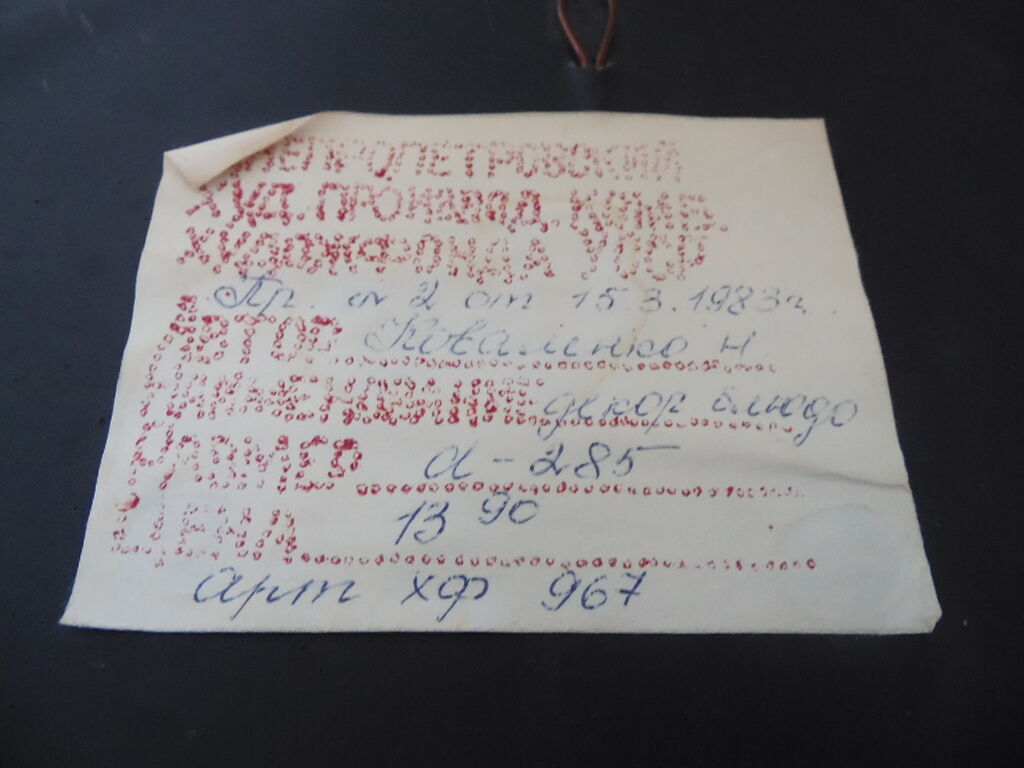 ДНЕПРОПЕТРОВСКИЙ
ХУД. ПРОИЗВОД. КОМБ.
ХУДОЖ ФОНДА УССР
Пр. № 2 от 15.3.1983г.
АВТОР Коваленко Н
НАИМЕНОВАНИЕ декор блюдо
РАЗМЕР d-285
ЦЕНА 13 90
арт ХФ 967